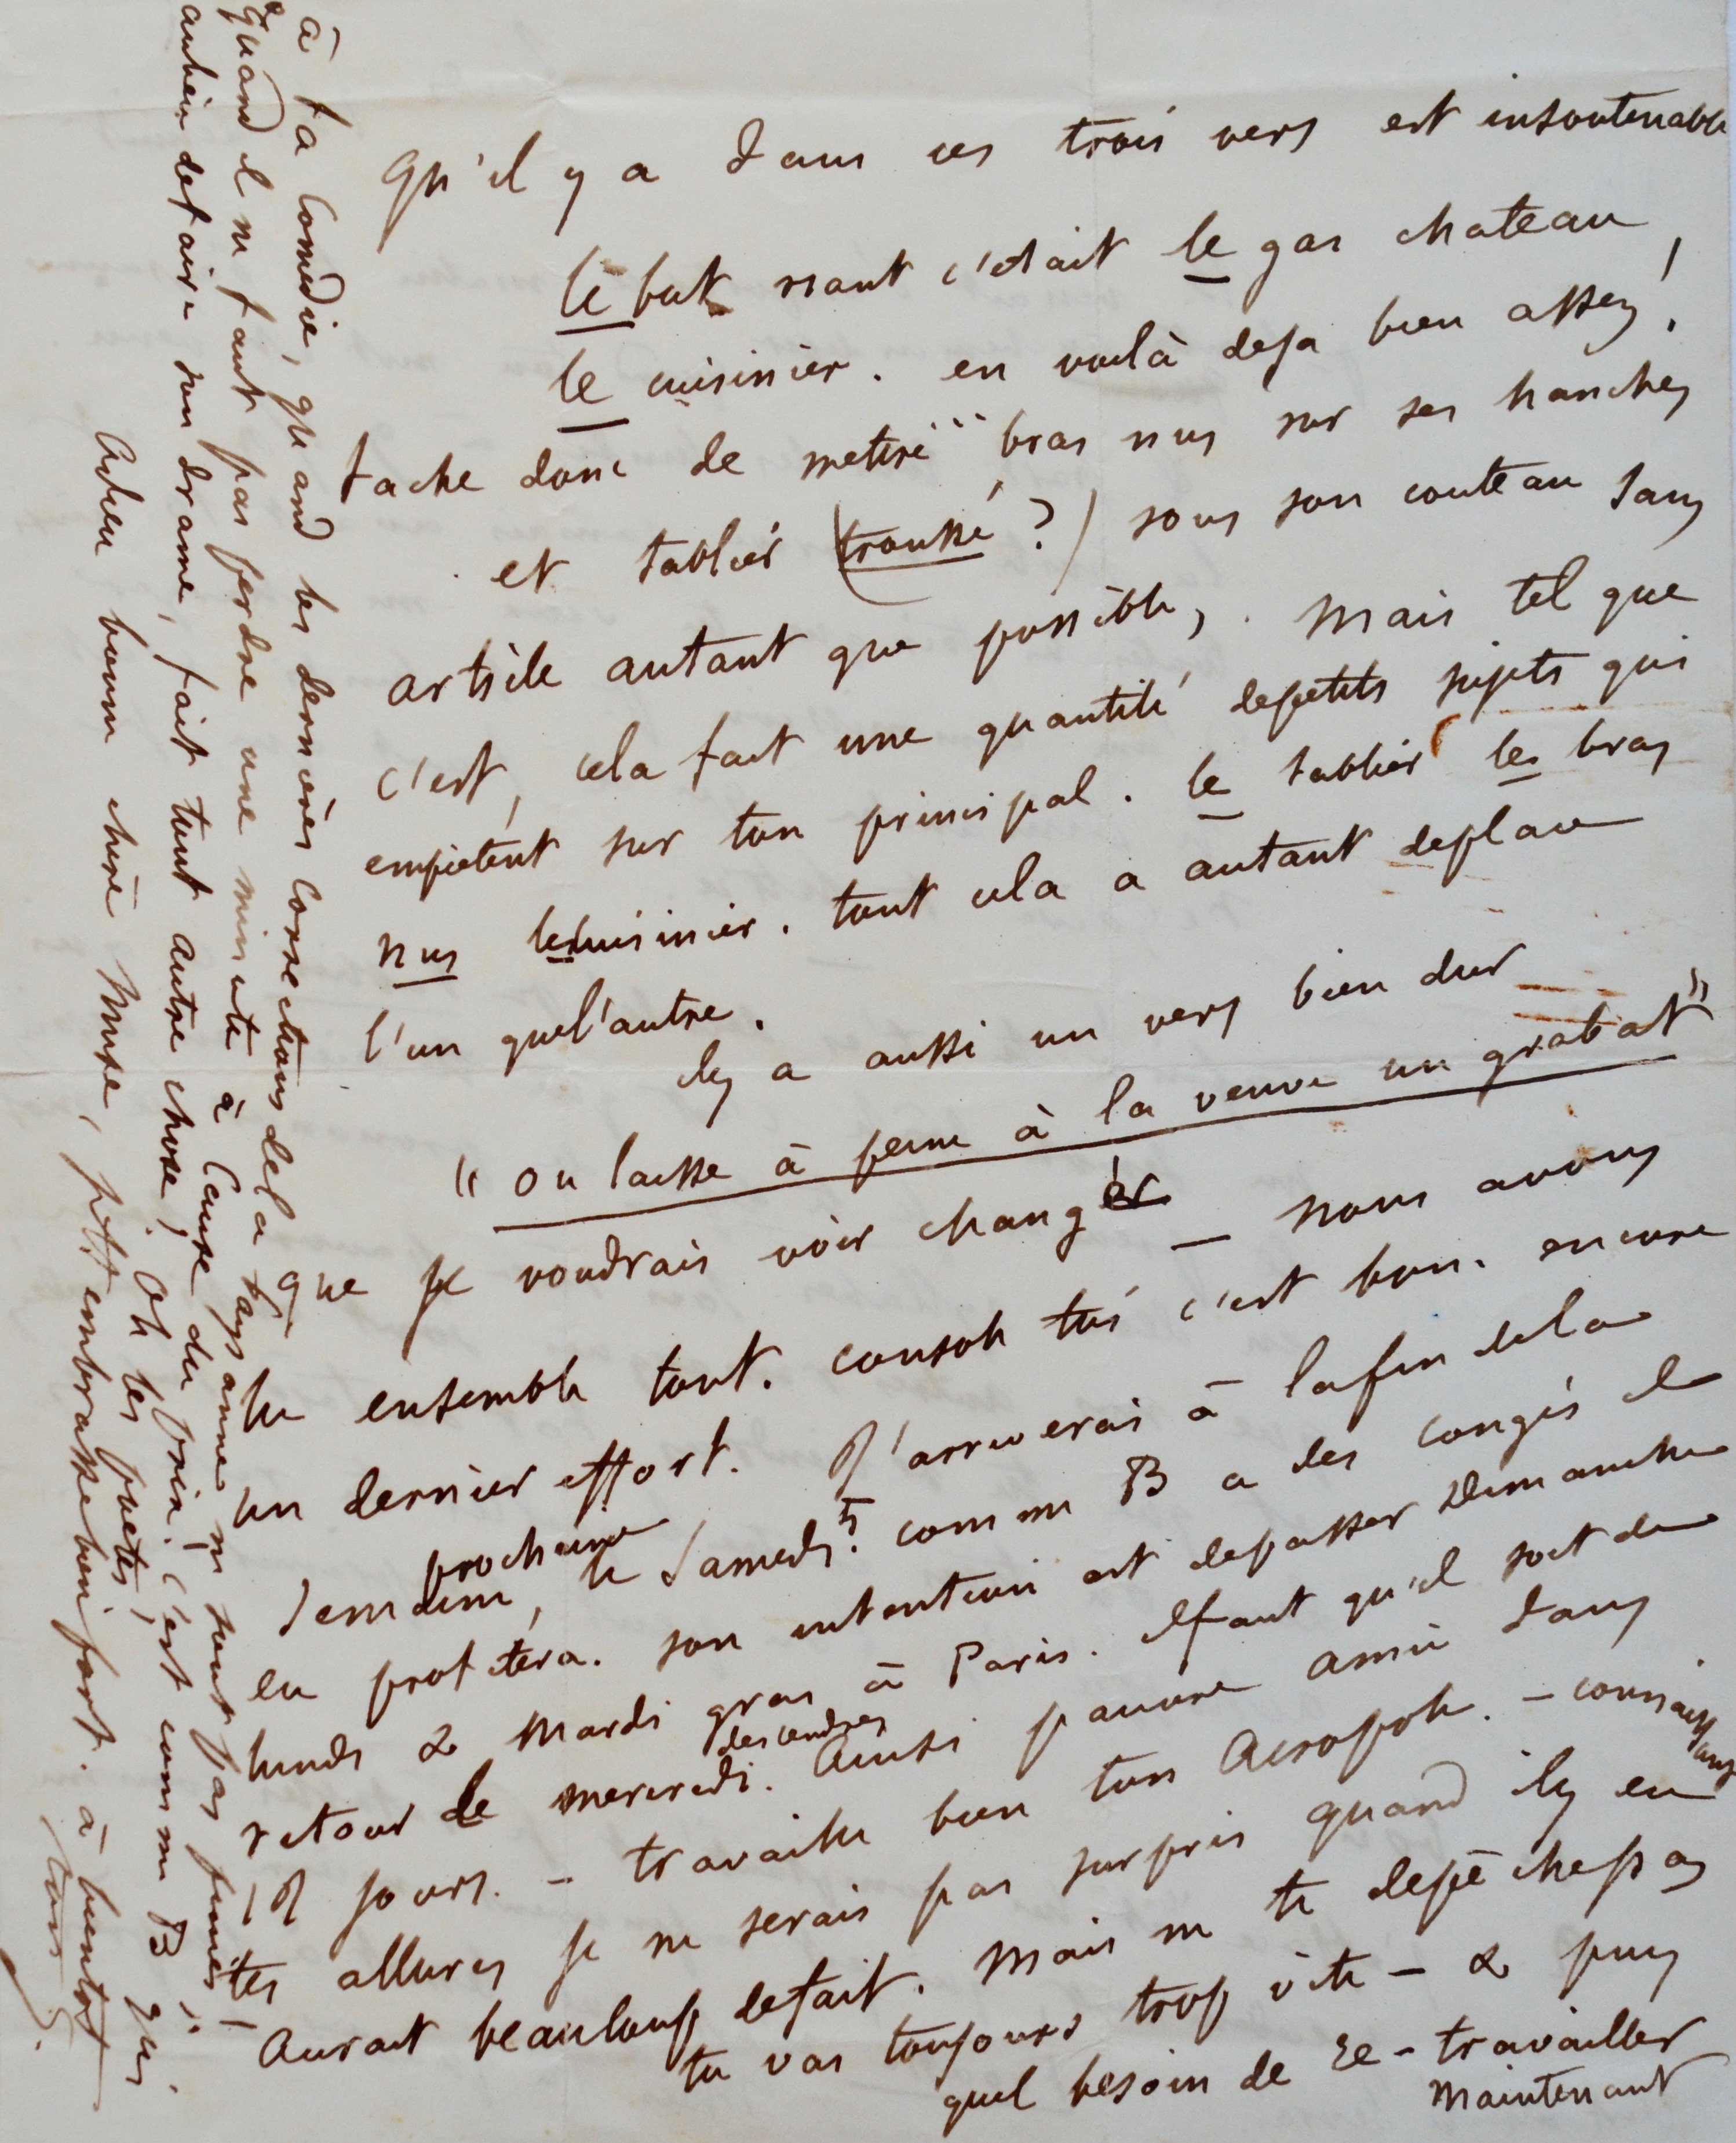 qu'il y a dans ces trois vers est insoutenable
le but riant c'était le gas chateau
le cuisinier. en voilà deja bien assez!
tache donc de mettre " bras nus sur ses hanches
et tablier (troussé?) sous son couteau sans
article autant que possible, . Mais tel que
c'est, cela fait une quantité de petits sujets qui
empietent sur ton principal. le tablier les bras
nus le cuisinier. tout cela a autant de place
l'un que l'autre.
Il y a aussi un vers bien dur
" on laisse à peine à la veuve un grabat "
que je voudrais voir changer — nous avons
lu ensemble tout. console toi c'est bon. encore
un dernier effort. J'arriverai à la fin de la
semaine prochaine, le samedi 5. comme B a des congés il
en profitera. son intention est de passer Dimanche
lundi & mardi gras à Paris. Il faut qu'il soit de
retour le mercredi des cendres. Ainsi pauvre amie dans
jours. – travaille bien ton Acropole. – connaissant
tes allures je ne serais pas surpris quand il y en
aurait beaucoup de fait. Mais ne te depêche pas
tu vas toujours trop vite – & puis
quel besoin de re-travailler
maintenant
à ta Comédie, quand les dernières corrections de la Paysanne ne sont pas finies!
quand il ne faut pas perdre une minute à cause du prix! c'est comme B qui
au lieu de faire son drame, fait tout autre chose, oh les poetes!
Adieu bonne chère Muse, je t'embrasse bien fort. à bientot
ton G.